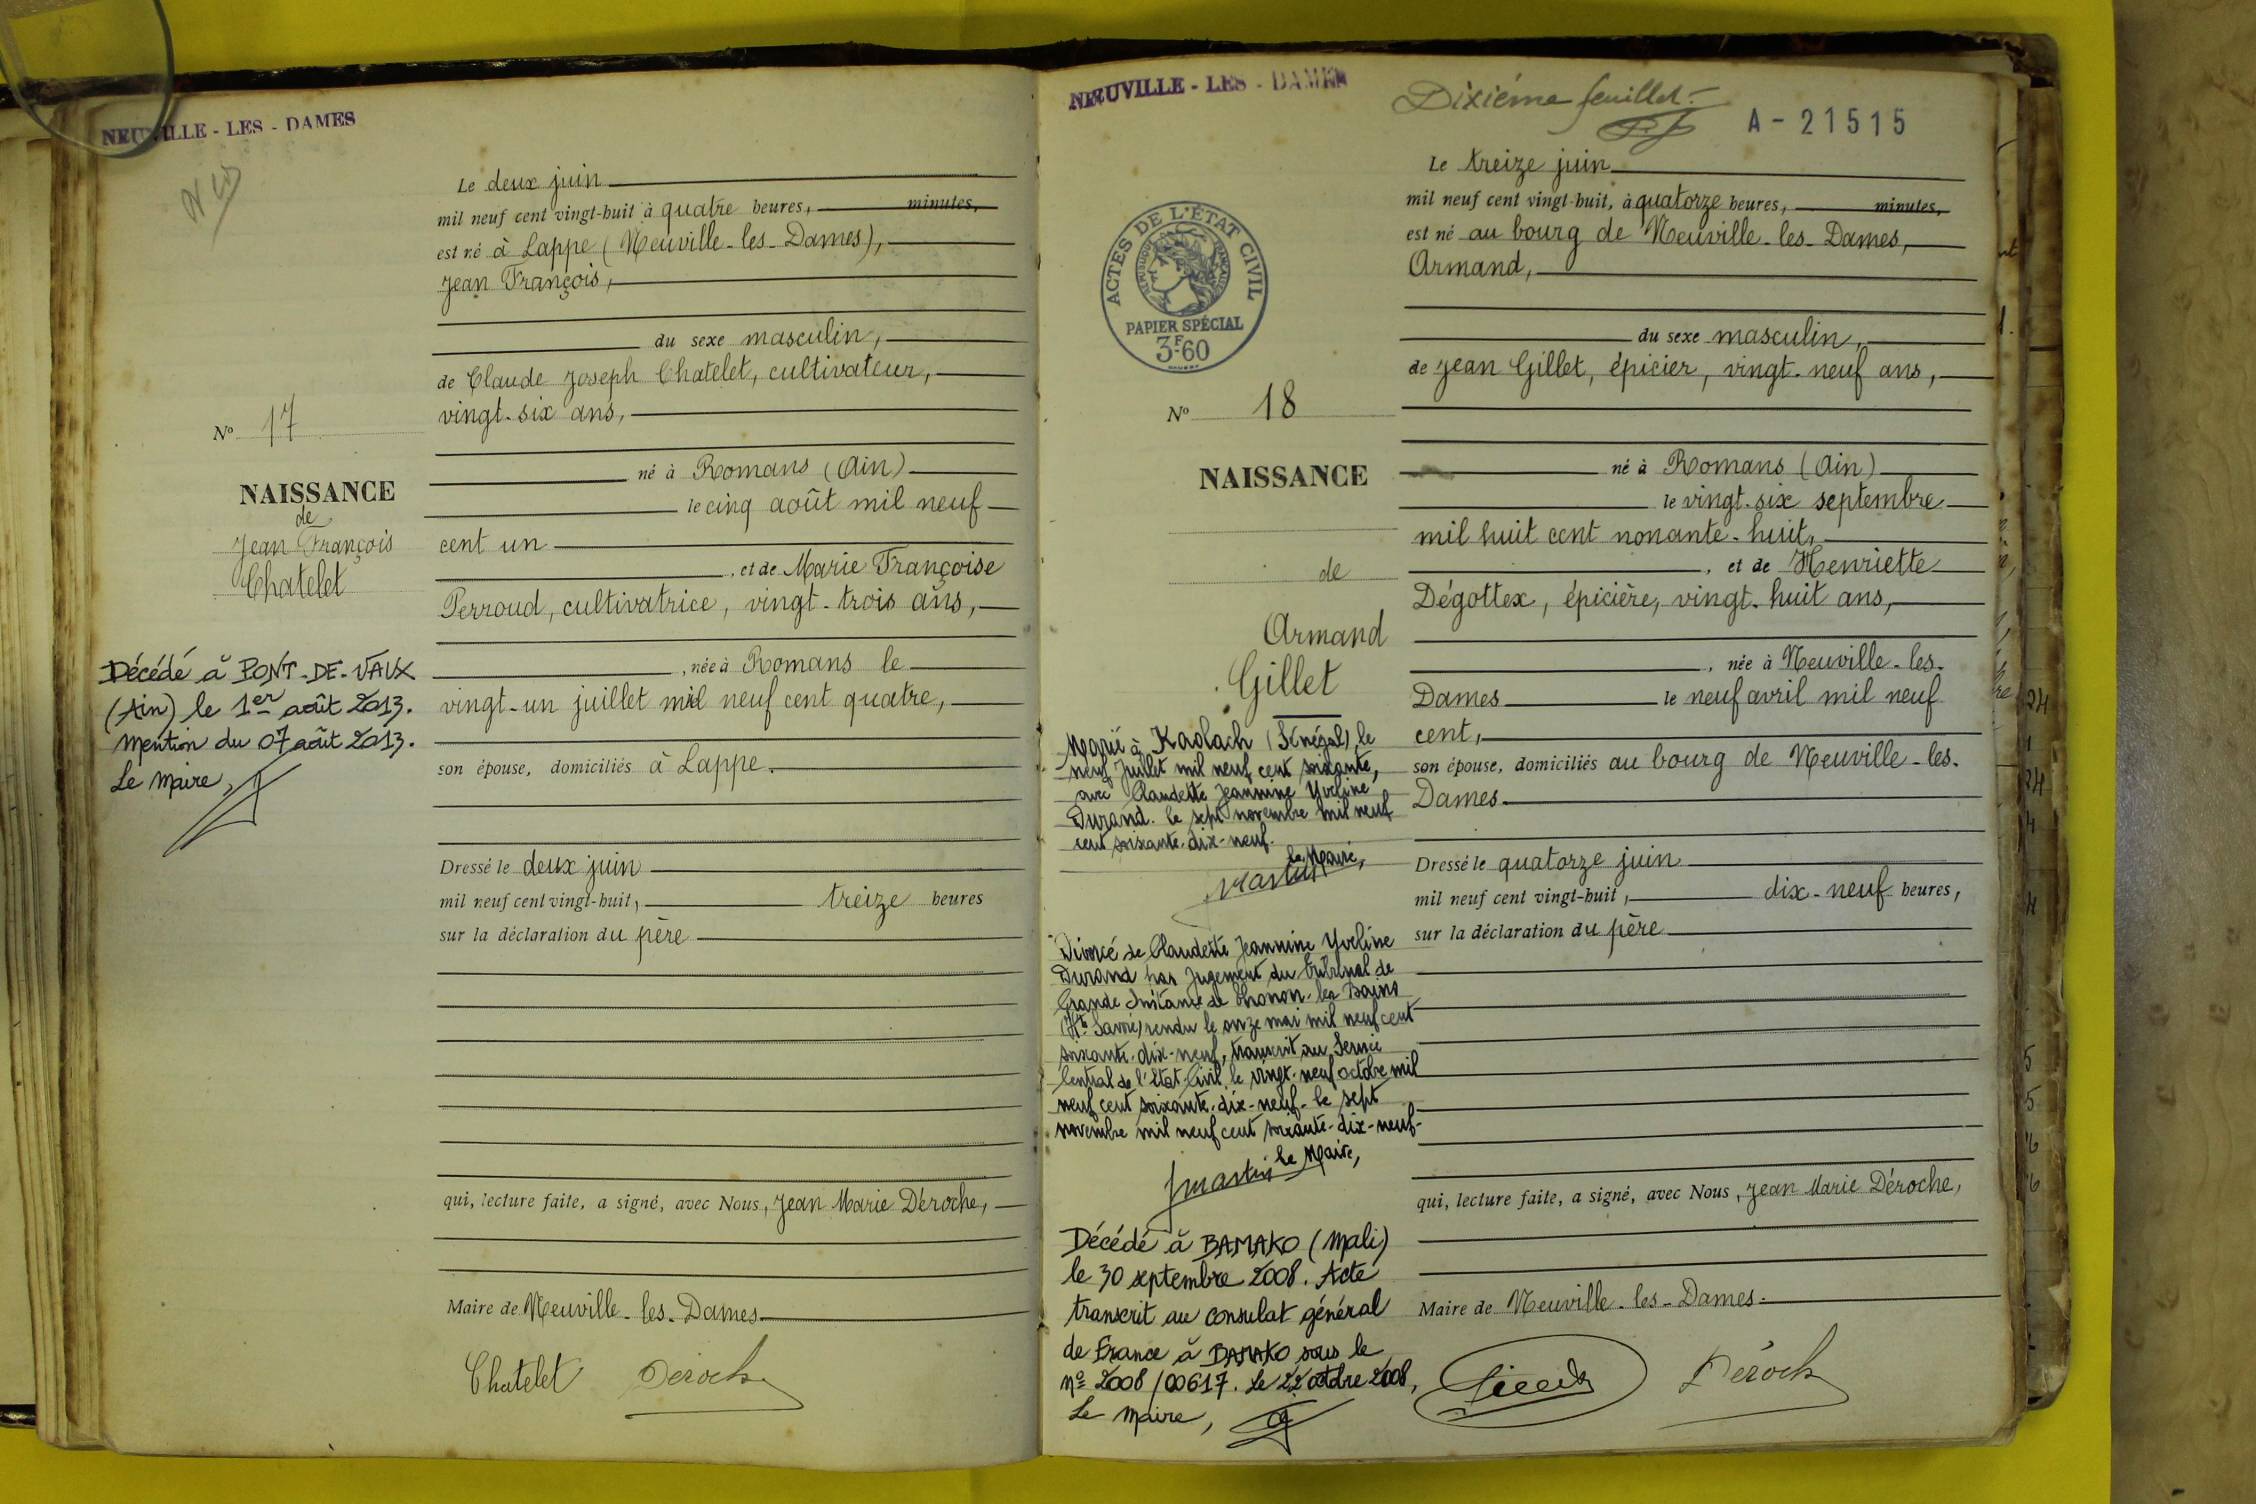 NEUVILLE - LES - DAMES
Le deux juin
mil neuf cent vingt-huit à quatre heures, minutes,
est né à Lappe (Neuville-les-Dames),
Jean François,
du sexe masculin,
de Claude Joseph Chatelet, cultivateur,
vingt-six ans,
né à Romans (Ain)
le cinq août mil neuf
cent un
, et de Marie Françoise
Perroud, cultivatrice, vingt-trois ans,
, née à Romans le
vingt-un juillet mil neuf cent quatre,
son épouse, domiciliés à Lappe.
Dressé le deux juin
mil neuf cent vingt-huit, treize heures
sur la déclaration du père
qui, lecture faite, a signé, avec Nous, Jean Marie Déroche,
Maire de Neuville-les-Dames
Chatelet Déroche
No 17
NAISSANCE
de
Jean François
Chatelet
Décédé à PONT-DE-VAUX
(Ain) le 1er août 2013.
Mention du 07 août 2013.
Le Maire,
NEUVILLE - LES - DAMES
Dixième feuillet.
A - 21515
ACTES DE L'ÉTAT CIVIL
RÉPUBLIQUE FRANÇAISE
PAPIER SPÉCIAL
3F60
No 18
NAISSANCE
de
Armand
Gillet
Marié à Kaolach (Sénégal) le
neuf Juillet mil neuf cent soixante,
avec Claudette Jeannine Yveline
Durand. le sept novembre mil neuf
cent soixante-dix-neuf.
le Maire,
Divorcé de Claudette Jeannine Yveline
Durand par Jugement du tribunal de
Grande Instance de Thonon-les Bains
(Hte Savoie) rendu le onze mai mil neuf cent
soixante-dix-neuf, transcrit au Service
Central de l'Etat Civil le vingt-neuf octobre mil
neuf cent soixante-dix-neuf- le sept
novembre mil neuf cent soixante-dix-neuf-
le Maire,
Décédé à BAMAKO (Mali)
le 30 septembre 2008. Acte
transcrit au consulat général
de France à BAMAKO sous le
no 2008/00617. Le 22 octobre 2008,
Le Maire,
Le treize juin
mil neuf cent vingt-huit, à quatorze heures, minutes,
est né au bourg de Neuville-les-Dames,
Armand,
du sexe masculin,
de Jean Gillet, épicier, vingt-neuf ans,
né à Romans (Ain)
le vingt-six septembre
mil huit cent nonante-huit,
, et de Henriette
Dégottex, épicière, vingt-huit ans,
, née à Neuville-les-
Dames le neuf avril mil neuf
cent,
son épouse, domiciliés au bourg de Neuville-les-
Dames.
Dressé le quatorze juin
mil neuf cent vingt-huit, dix-neuf heures,
sur la déclaration du père
qui, lecture faite, a signé, avec Nous, Jean Marie Déroche,
Maire de Neuville-les-Dames.
Gillet Déroche